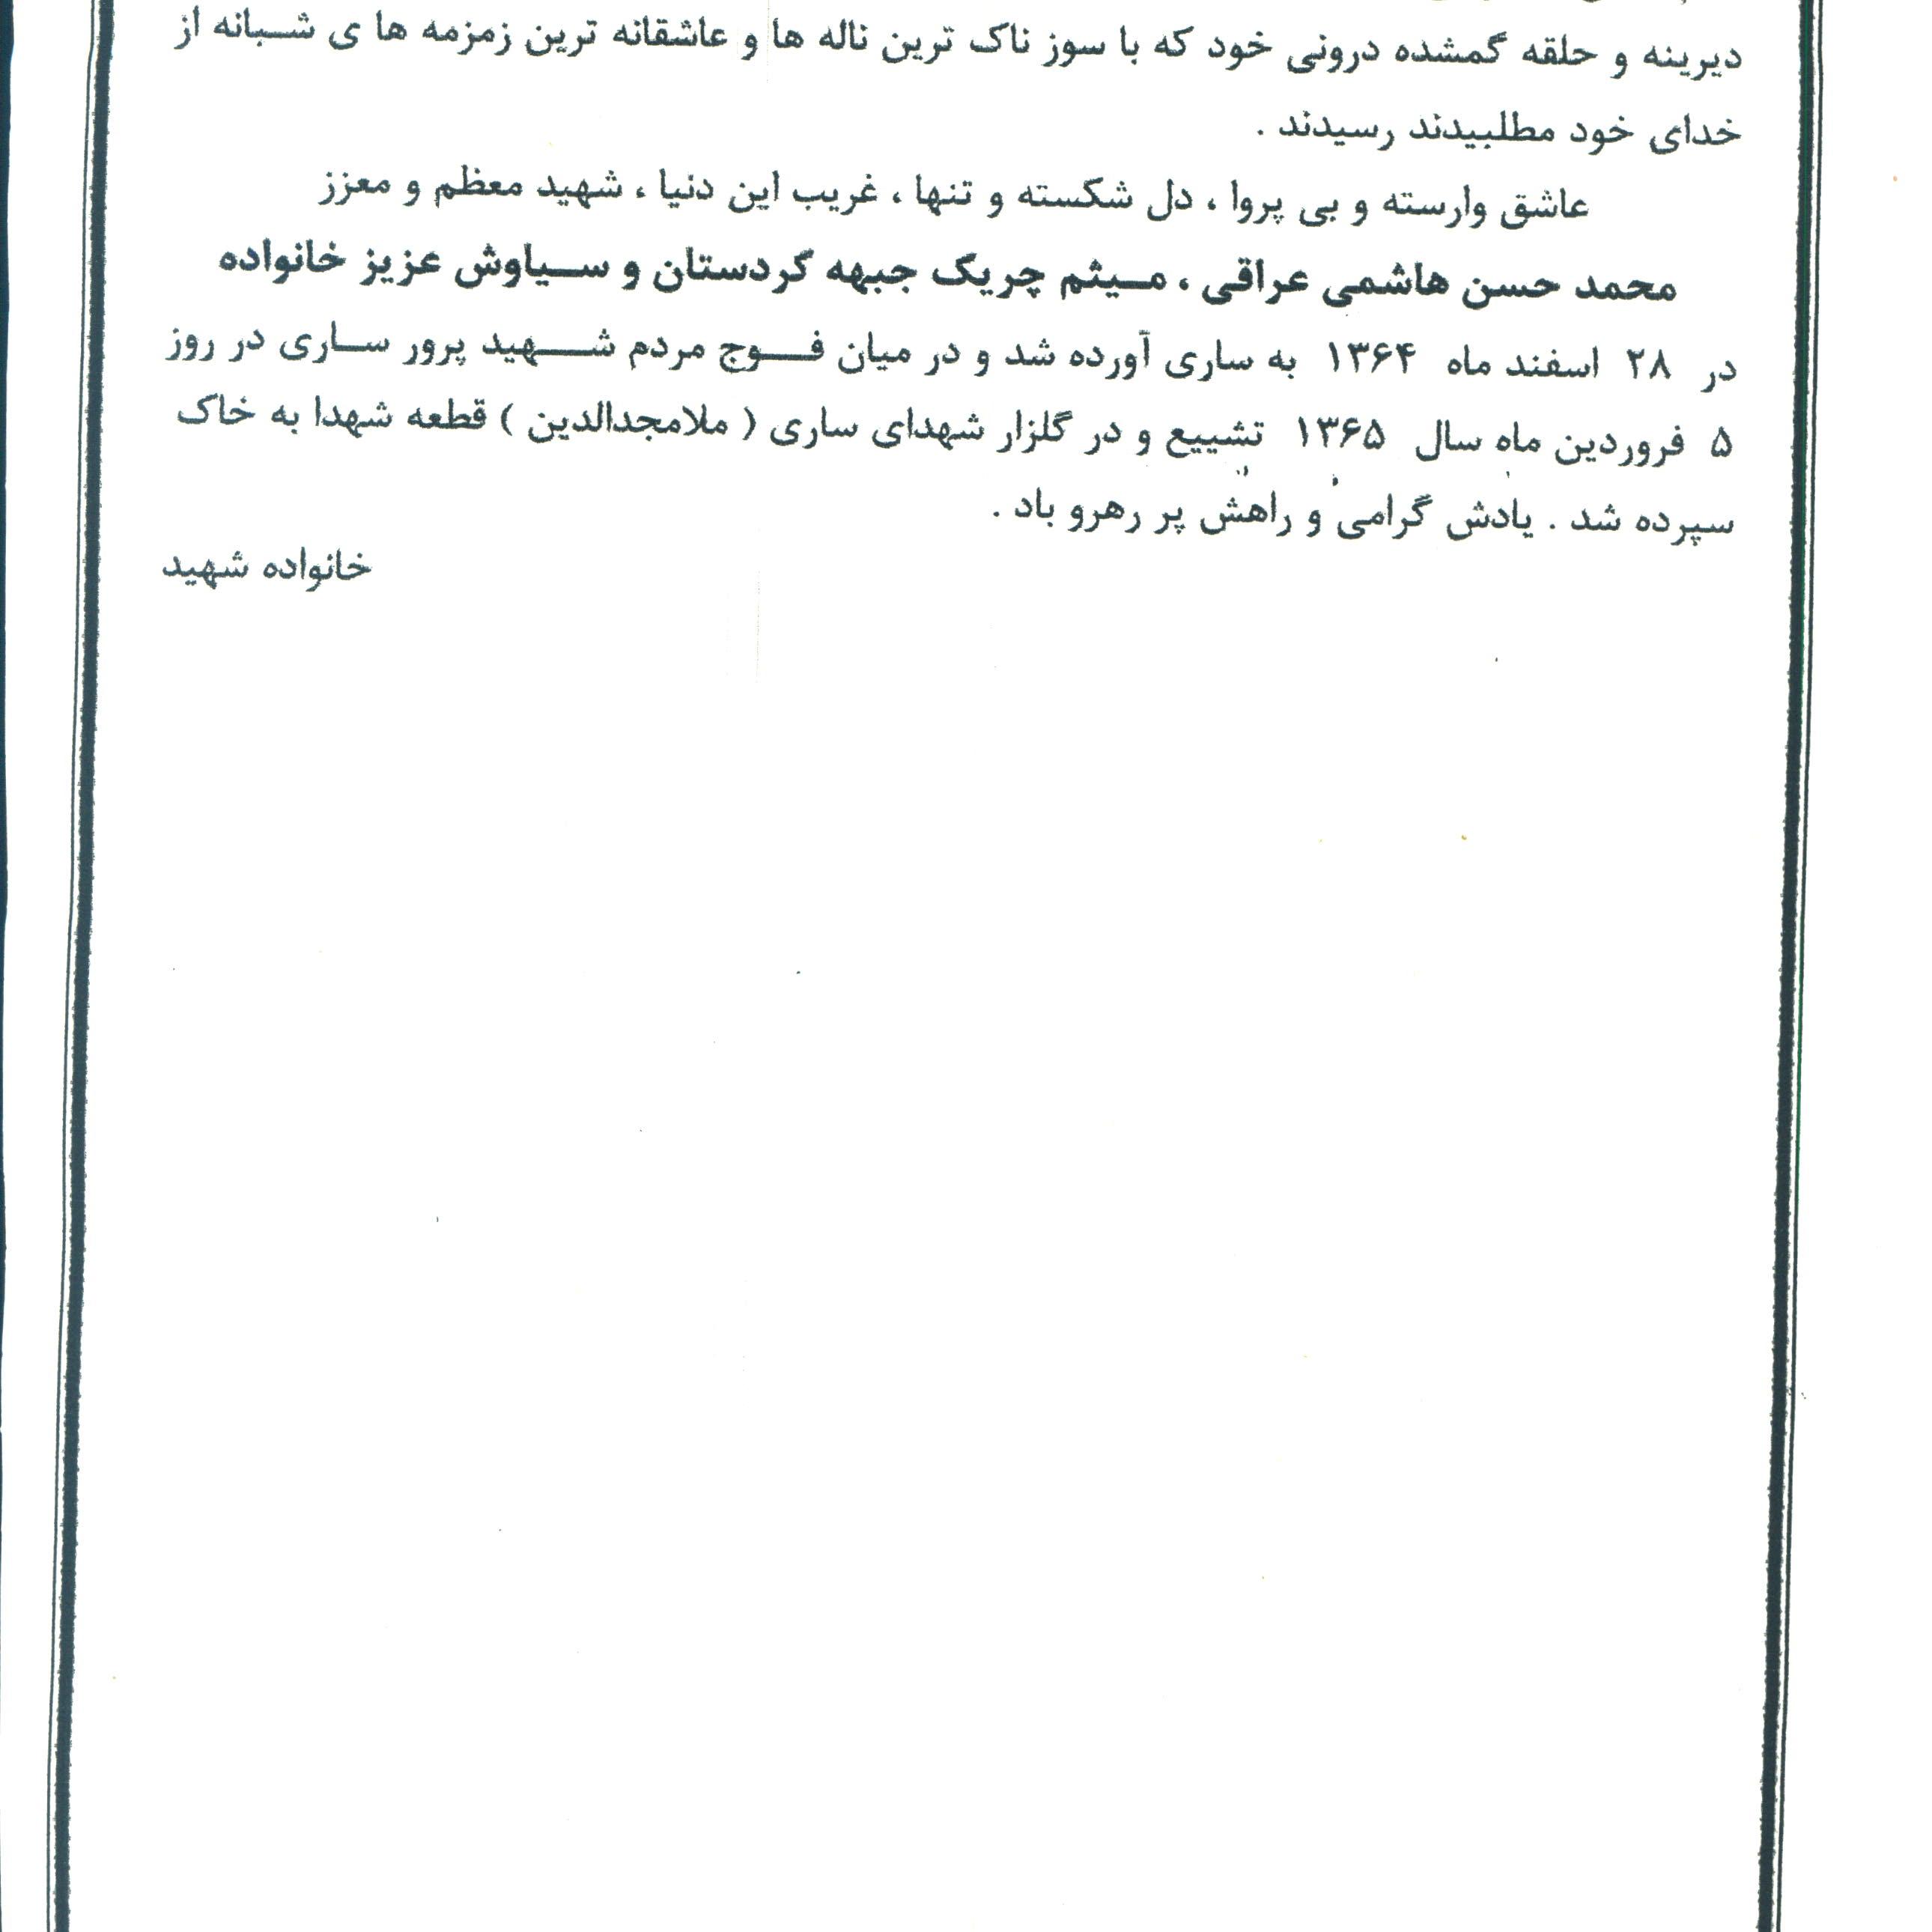 دیرینه و حلقه گمشده درونی خود که با سوز ناک ترین ناله ها و عاشقانه ترین زمزمه ها ی شبانه از
خدای خود مطلبیدند رسیدند .
عاشق وارسته و بی پروا ، دل شکسته و تنها ، غریب این دنیا ، شهید معظم و معزز
محمد حسن هاشمی عراقی ، میثم چریک جبهه کردستان و سیاوش عزیز خانواده
در ۲۸ اسفند ماه ۱۳۶۴ به ساری آورده شد و در میان فوج مردم شهید پرور ساری در روز
۵ فروردین ماه سال ۱۳۶۵ تشییع و در گلزار شهدای ساری ( ملامجدالدین ) قطعه شهدا به خاک
سپرده شد . یادش گرامی و راهش پر رهرو باد .
خانواده شهید